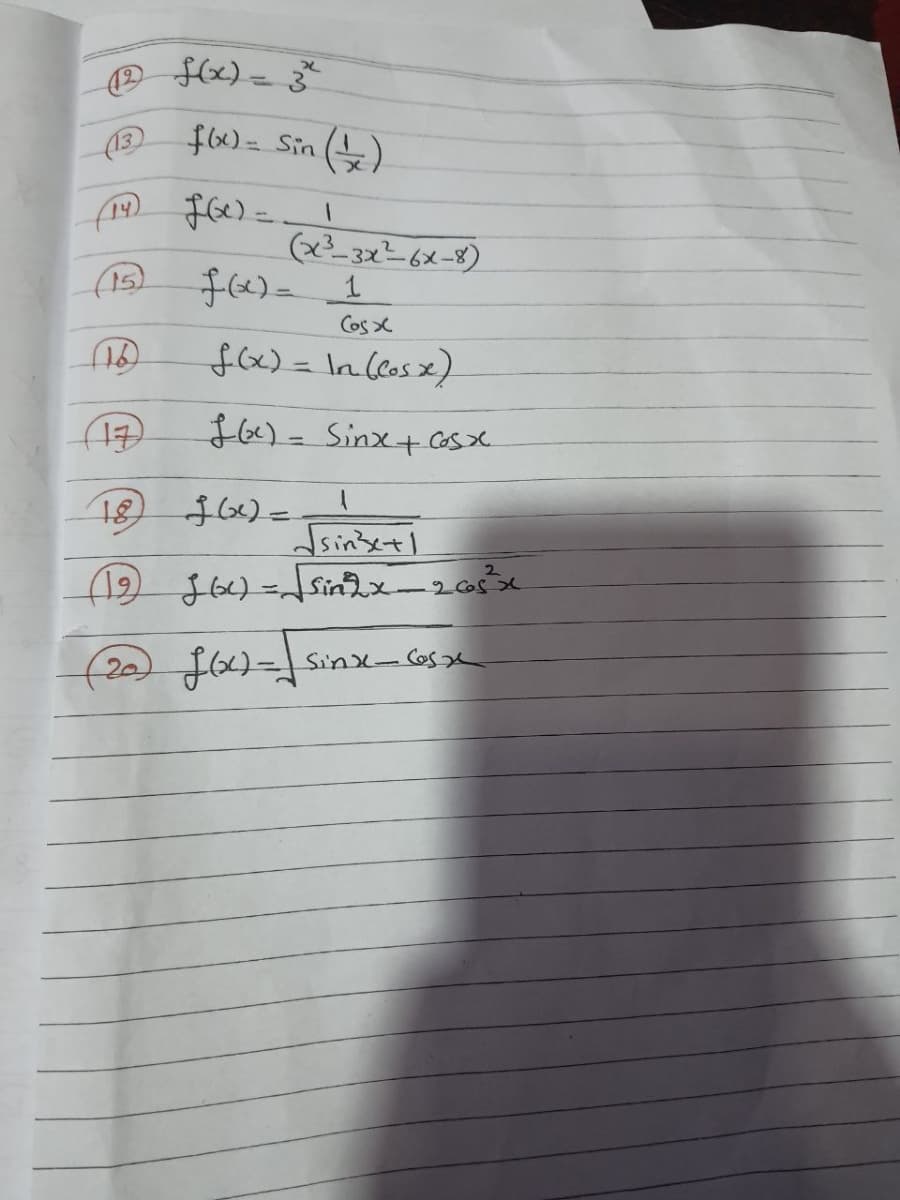 (12) f(x) = 3^x
(13) f(x) = Sin (1/x)
(14) f(x) = 1/(x³-3x²-6x-8)
(15) f(x) = 1/Cosx
(16) f(x) = ln (Cosx)
(17) f(x) = Sinx + Cosx
(18) f(x) = 1/√(sin²x+1)
(19) f(x) = √(sin2x - 2cos²x)
(20) f(x) = √(sinx - Cosx)